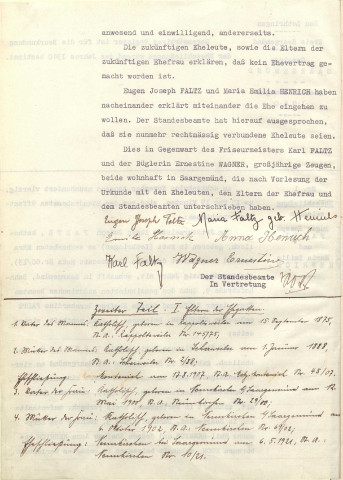 anwesend und einwilligend, andererseits.
Die zukünftigen Eheleute, sowie die Eltern der
zukünftigen Ehefrau erklären, daß kein Ehevertrag ge-
macht worden ist.
Eugen Joseph FALTZ und Maria Emilia HENRICH haben
nacheinander erklärt miteinander die Ehe eingehen zu
wollen. Der Standesbeamte hat hierauf ausgesprochen,
daß sie nunmehr rechtmässig verbundene Eheleute seien.
Dies in Gegenwart des Friseurmeisters Karl FALTZ
und der Büglerin Ernestine WAGNER, großjährige Zeugen,
beide wohnhaft in Saargemünd, die nach Vorlesung der
Urkunde mit den Eheleuten, den Eltern der Ehefrau und
dem Standesbeamten unterschrieben haben.
Eugen Joseph Faltz Maria Faltz geb. Henrich
Emile Henrich Anna Henrich
Karl Faltz Wagner Ernestine
Der Standesbeamte
In Vertretung
Zweiter Teil - I. Eltern der Ehegatten
1. Vater des Mannes: Katholisch, geboren in Rappoltsweiler am 15 September 1875,
St. A. Rappoltsweiler Nr 145/75.
2. Mutter des Mannes: Katholisch, geboren in am 1. Januar 1888,
St. A.
Eheschließung: am 17.8.1907. St. A. Nr 68/07.
3. Vater der Frau: Katholisch, geboren in Neunkirchen b/ Saargemünd am 12.
Mai 1900 St. A. Neunkirchen Nr 29/00;
4. Mutter der Frau: Katholisch, geboren in Neunkirchen b/ Saargemünd am
6. Oktober 1902, St. A. Neunkirchen Nr 69/02;
Eheschließung: Neunkirchen bei Saargemünd am 6.5.1921, St. A.
Neunkirchen Nr 10/21.